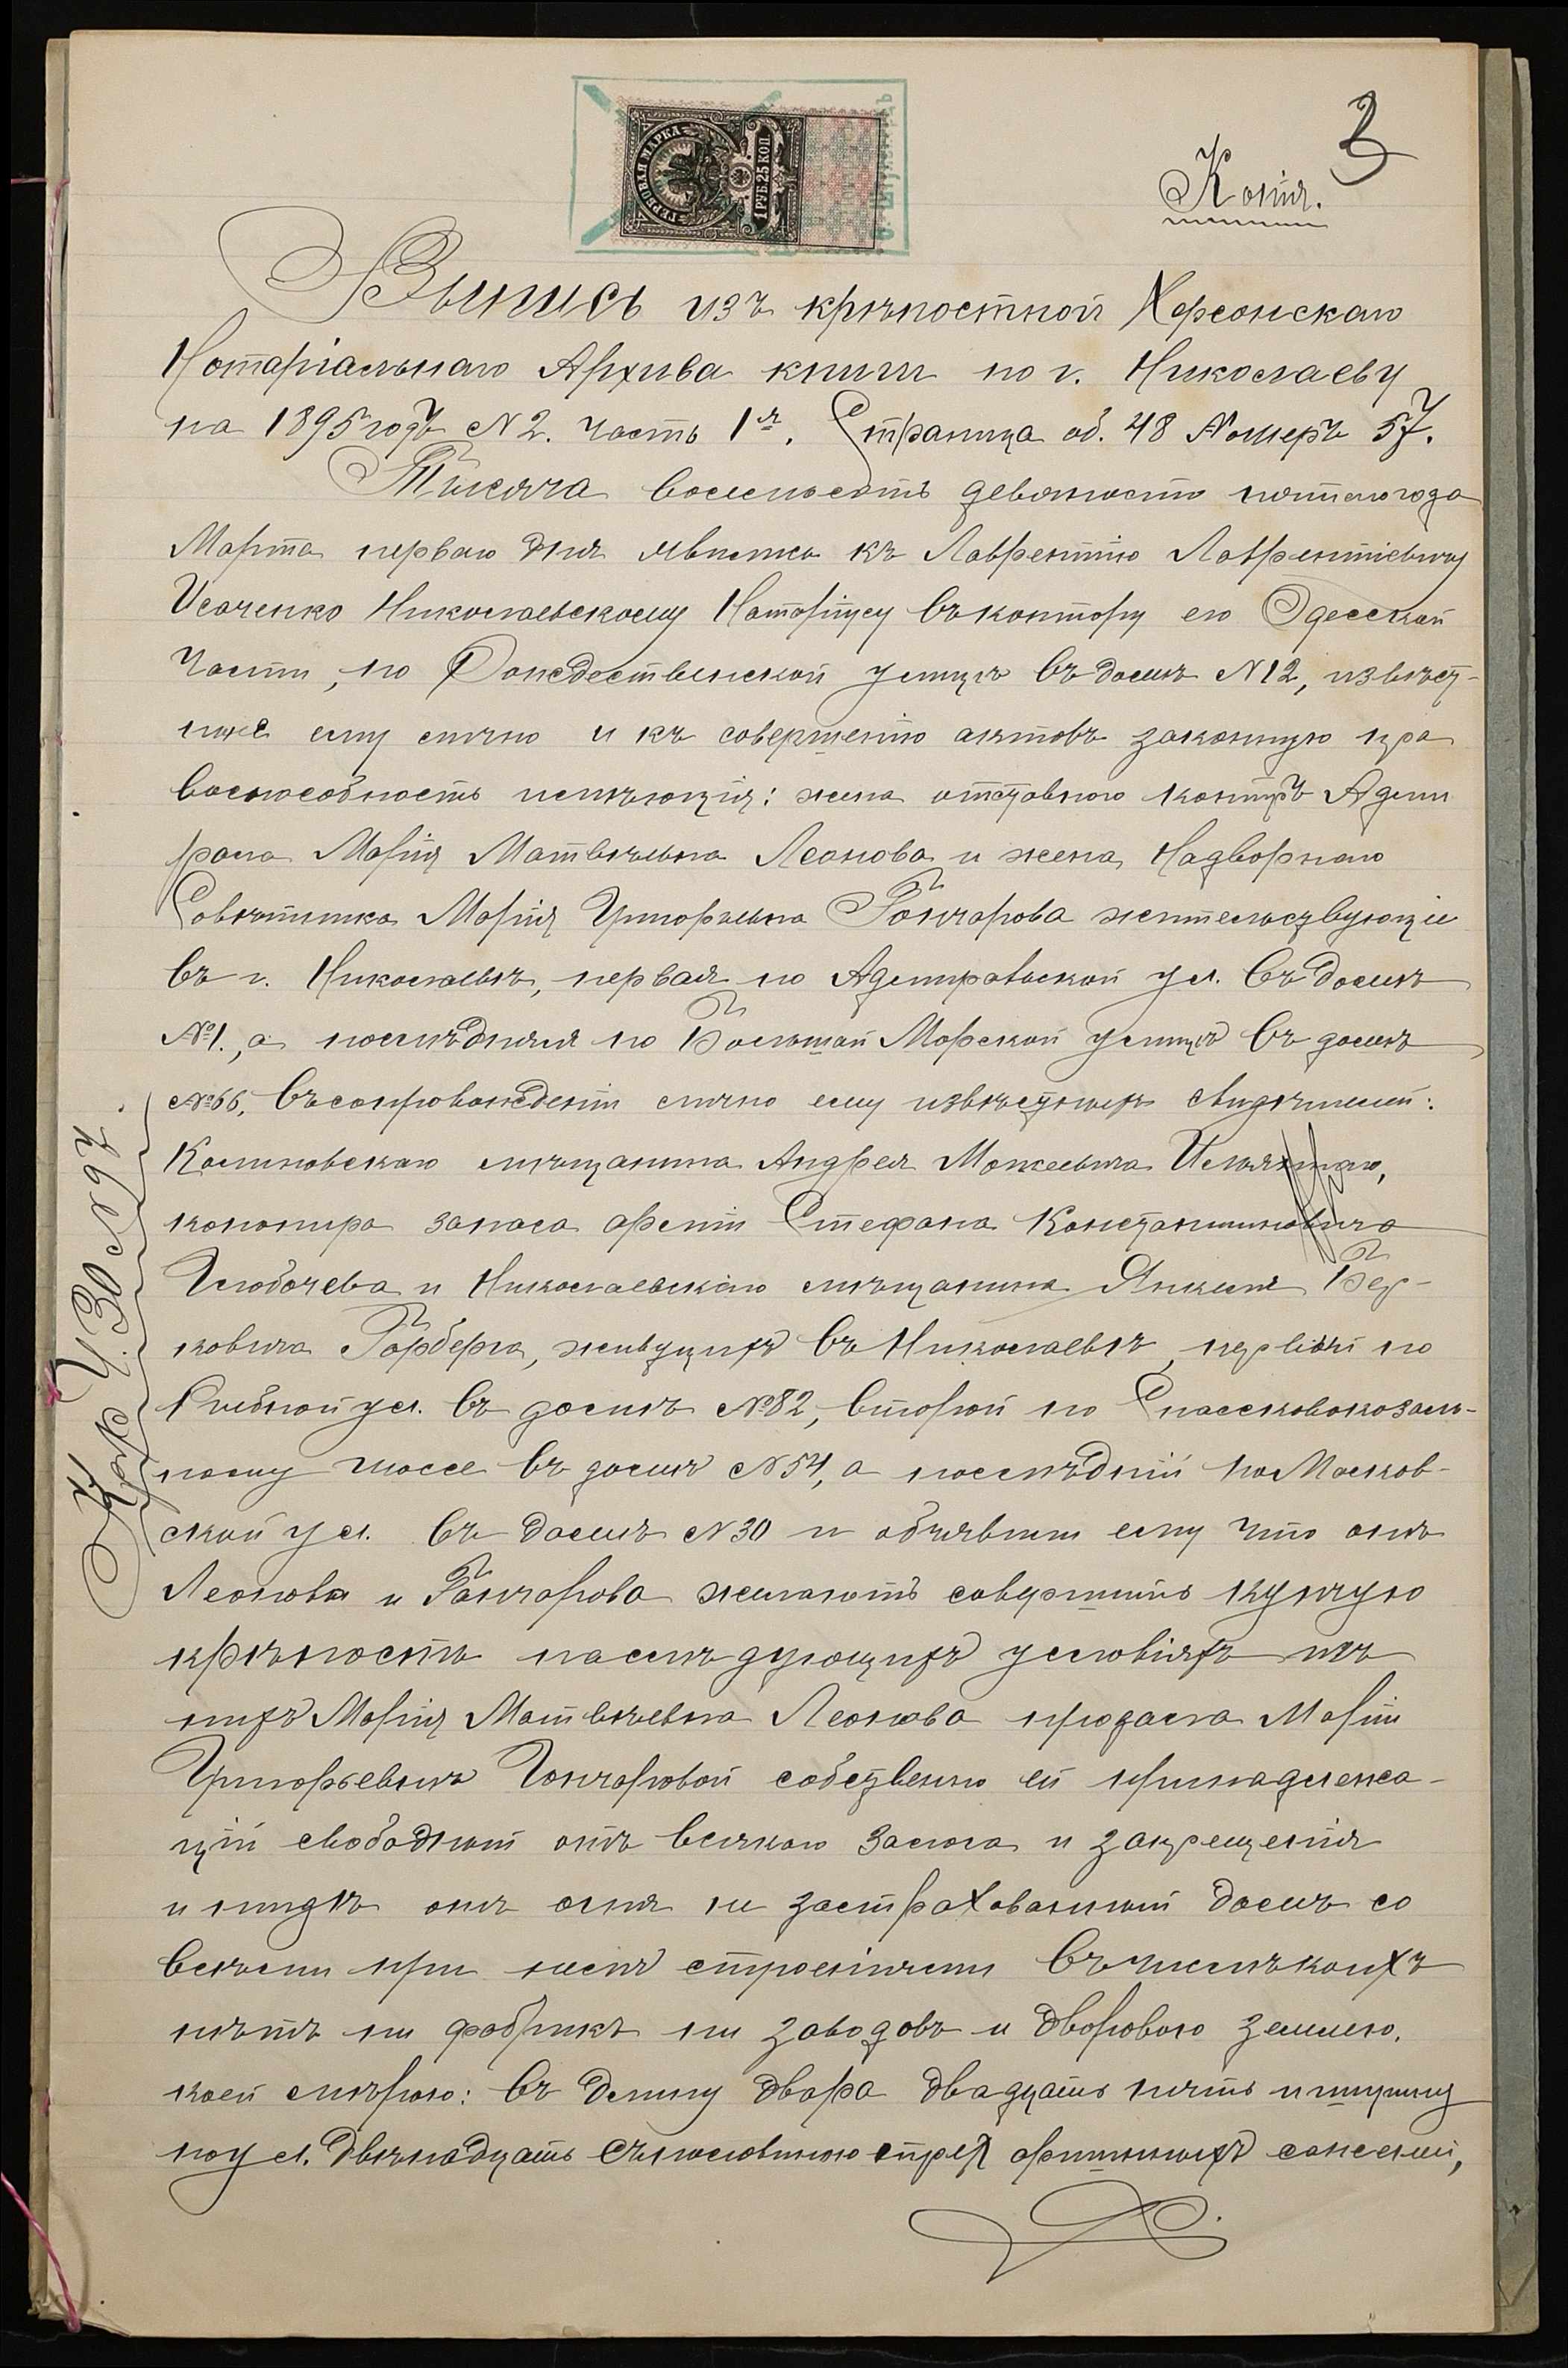 3
Копія.
ГЕРБОВАЯ МАРКА
1 РУБ. 25 КОП.
Выпись изъ крѣпостной Херсонскаго
Нотаріальнаго Архива книги по г. Николаеву
на 1895 годъ № 2. часть 1я. Страница об. 48 Номеръ 57.
Тысяча восемьсотъ девяносто пятаго года
Марта перваго дня явились къ Лаврентію Лаврентіевичу
Исаченко Николаевскому Нотаріусу въ контору его Одесской
части, по Рождественской улицѣ въ домѣ № 12, извѣст-
ные ему лично и къ совершенію актовъ законную пра
воспособность имѣющія: жена отставного контръ Адми
рала Марія Матвѣевна Леонова и жена Надворнаго
Совѣтника Марія Григорьевна Гончарова жительствующіе
въ г. Николаевѣ, первая по Адмиральской ул. въ домѣ
№ 1., а послѣдняя по Большой Морской улицѣ въ домѣ
№ 66, въ сопровожденіи лично ему извѣстныхъ свидѣтелей:
мѣщанина Андрея
запаса арміи Стефана Константиновича
и Николаевскаго мѣщанина Янкеля Бер-
ковича Горберга, живущихъ въ Николаевѣ, первый по
ул. въ домѣ № 82, второй по
ному шоссе въ домѣ № 54, а послѣдній по Москов-
ской ул. въ домѣ № 30 и объявили ему что онѣ
Леонова и Гончарова желаютъ совершить купчую
крѣпость на слѣдующихъ условіяхъ изъ
нихъ Марія Матвѣевна Леонова продала Маріи
Григорьевнѣ Гончаровой собственно ей принадлежа-
щій свободный отъ всякаго залога и запрещенія
и нигдѣ отъ огня не застрахованный домъ со
всѣми при немъ строеніями въ числѣ коихъ
нѣтъ ни фабрикъ ни заводовъ и дворовою землею,
коей мѣрою: въ длину двора двадцать пять и ширину
по ул. двѣнадцать съ половиною аршинныхъ саженей,
Кр. Ч. 30 № 97